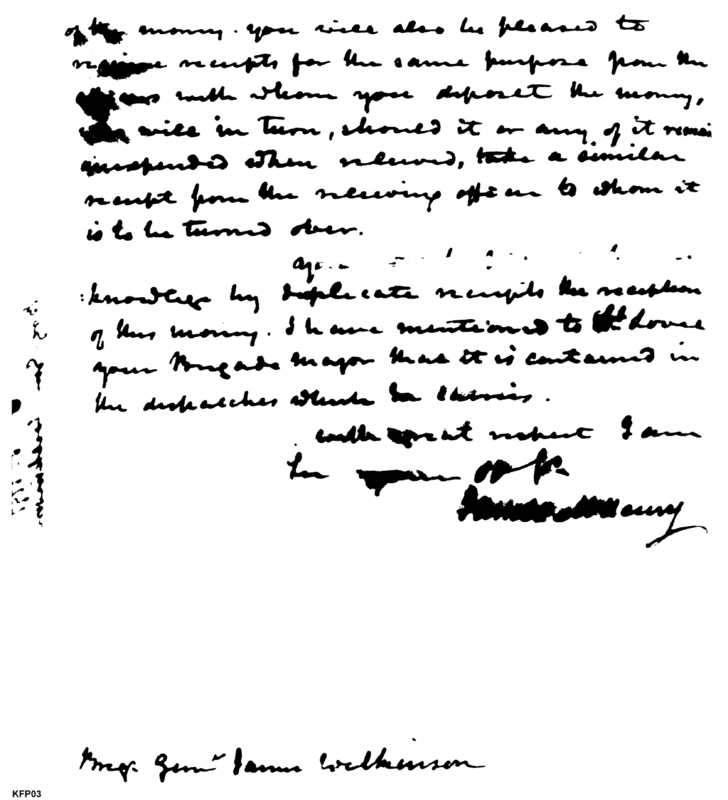 of the money. you will also be pleased to
receipts for the same purpose from the
with whom you deposit the money,
will in turn, should it or any of it remain
unexpended when relieved, take a similar
receipt from the relieving officer to whom it
is to be turned over.
you
knowledge by duplicate receipts the reception
of this money. I have mentioned to Lt. Lovell
your Brigade Major that it is contained in
the dispatches which he carries.
with great respect I am
Sir your
James McHenry
Brig. Genl James Wilkinson
KFP03